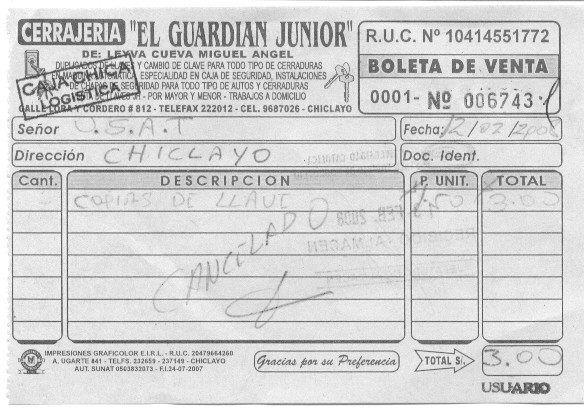 CERRAJERIA "EL GUARDIAN JUNIOR"
DE: LEYVA CUEVA MIGUEL ANGEL
DUPLICADOS DE LLAVES Y CAMBIO DE CLAVE PARA TODO TIPO DE CERRADURAS
EN MAQUINA AUTOMATICA, ESPECIALIDAD EN CAJA DE SEGURIDAD, INSTALACIONES
DE CHAPAS DE SEGURIDAD PARA TODO TIPO DE AUTOS Y CERRADURAS
POR MAYOR Y MENOR - TRABAJOS A DOMICILIO
CALLE LORA Y CORDERO # 812 - TELEFAX 222012 - CEL. 9687026 - CHICLAYO
CAJA CHICA
LOGISTICA
R.U.C. Nº 10414551772
BOLETA DE VENTA
0001- Nº 006743
Señor U.S.A.T
Fecha: 12/02/2008
Dirección CHICLAYO
Doc. Ident.
Cant. DESCRIPCION P. UNIT. TOTAL
COPIAS DE LLAVE 1.50 3.00
13 FEB. 2008
RECIBIDO ALMACEN
CANCELADO
IMPRESIONES GRAFICOLOR E.I.R.L. - R.U.C. 20479664260
A. UGARTE 841 - TELFS. 232659 - 237149 - CHICLAYO
AUT. SUNAT 0503832073 - F.I.24-07-2007
Gracias por su Preferencia
TOTAL S/. 3.00
USUARIO